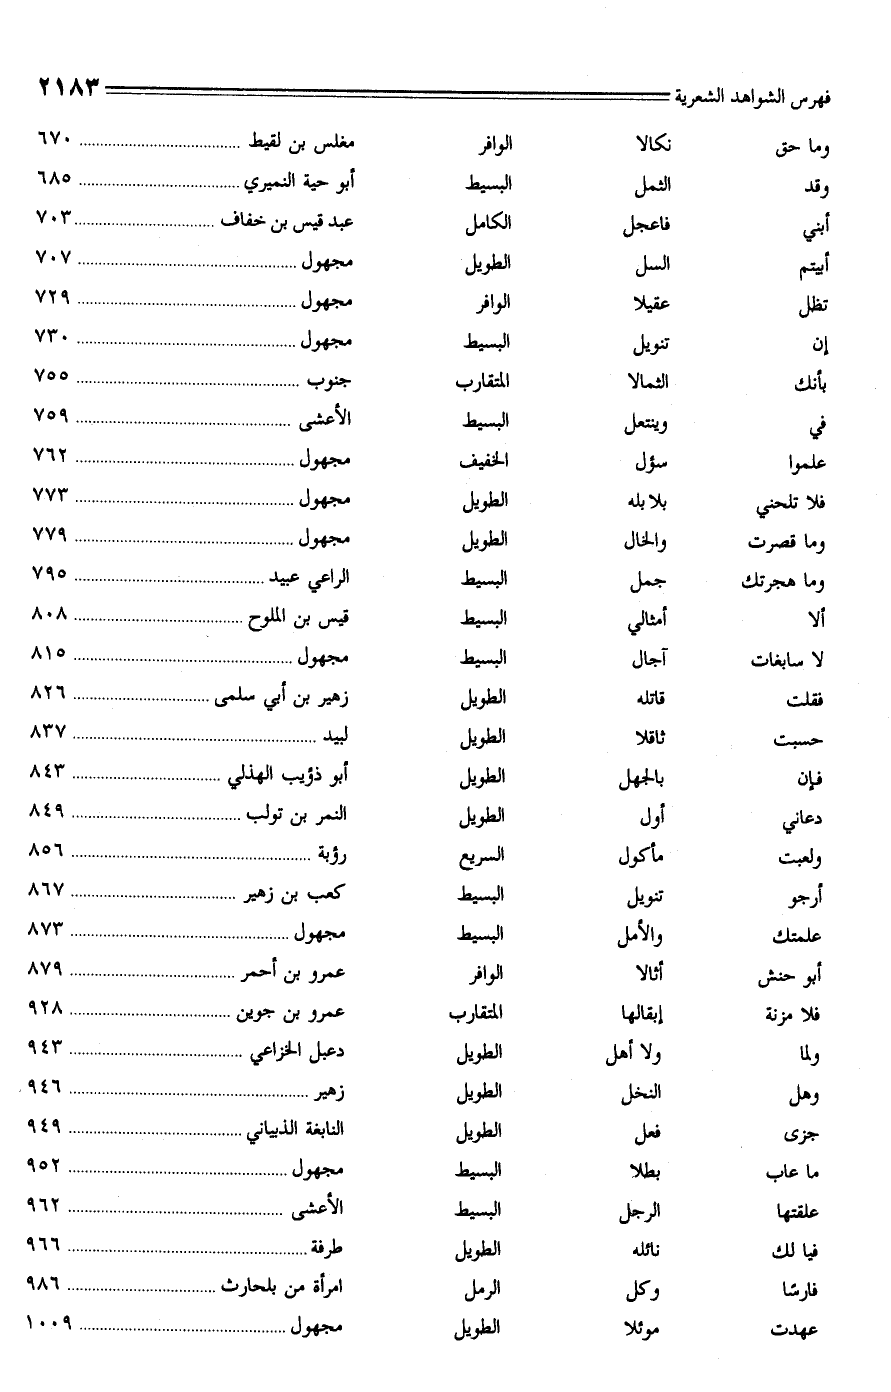 فهرس الشواهد الشعرية ٢١٨٣
وما حق نكالا الوافر مغلس بن لقيط ٦٧٠
وقد الثمل البسيط أبو حية النميري ٦٨٥
أبني فاعجل الكامل عبد قيس بن خفاف ٧٠٣
أبيتم السل الطويل مجهول ٧٠٧
تظل عقيلا الوافر مجهول ٧٢٩
إن تنويل البسيط مجهول ٧٣٠
بأنك الثمالا المتقارب جنوب ٧٥٥
في وينتعل البسيط الأعشى ٧٥٩
علموا سؤل الخفيف مجهول ٧٦٢
فلا تلحني بلابله الطويل مجهول ٧٧٣
وما قصرت والخال الطويل مجهول ٧٧٩
وما هجرتك جمل البسيط الراعي عبيد ٧٩٥
ألا أمثالي البسيط قيس بن الملوح ٨٠٨
لا سابغات آجال البسيط مجهول ٨١٥
فقلت قاتله الطويل زهير بن أبي سلمى ٨٢٦
حسبت ثاقلا الطويل لبيد ٨٣٧
فإن بالجهل الطويل أبو ذؤيب الهذلي ٨٤٣
دعاني أول الطويل النمر بن تولب ٨٤٩
ولعبت مأكول السريع رؤبة ٨٥٦
أرجو تنويل البسيط كعب بن زهير ٨٦٧
علمتك والأمل البسيط مجهول ٨٧٣
أبو حنش أثالا الوافر عمرو بن أحمر ٨٧٩
فلا مزنة إبقالها المتقارب عمرو بن جوين ٩٢٨
ولما ولا أهل الطويل دعبل الخزاعي ٩٤٣
وهل النخل الطويل زهير ٩٤٦
جزى فعل الطويل النابغة الذبياني ٩٤٩
ما عاب بطلا البسيط مجهول ٩٥٢
علقتها الرجل البسيط الأعشى ٩٦٢
فيا لك نائله الطويل طرفة ٩٦٦
فارسًا وكل الرمل امرأة من بلحارث ٩٨٦
عهدت موئلا الطويل مجهول ١٠٠٩